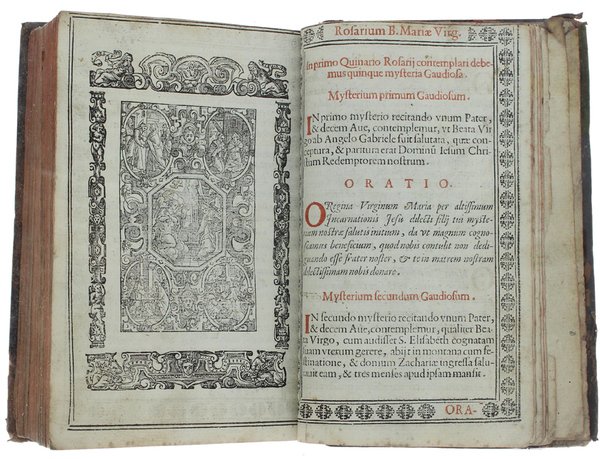 Rosarium B. Mariæ Virg.
In primo Quinario Rosarij contemplari debe-
mus quinque mysteria Gaudiosa.
Mysterium primum Gaudiosum.
IN primo mysterio recitando vnum Pater,
& decem Aue, contemplemur, vt Beata Vir
go ab Angelo Gabriele fuit salutata, quæ con-
ceptura, & paritura erat Dominũ Iesum Chri
stum Redemptorem nostrum.
ORATIO.
O Regina Virginum Maria per altissimum
Incarnationis Iesu dilecti filij tui myste-
rium nostræ salutis initium, da vt magnum cogno-
scamus beneficium, quod nobis contulit non dedi-
gnando esse frater noster, & te in matrem nostram
delectissimam nobis donare.
Mysterium secundum Gaudiosum.
IN secundo mysterio recitando vnum Pater,
& decem Aue, contemplemur, qualiter Bea
ta Virgo, cum audisset S. Elisabeth cognatam
suam vterum gerere, abijt in montana cum fe-
stinatione, & domum Zachariæ ingressa salu-
tauit eam, & tres menses apud ipsam mansit.
ORA-